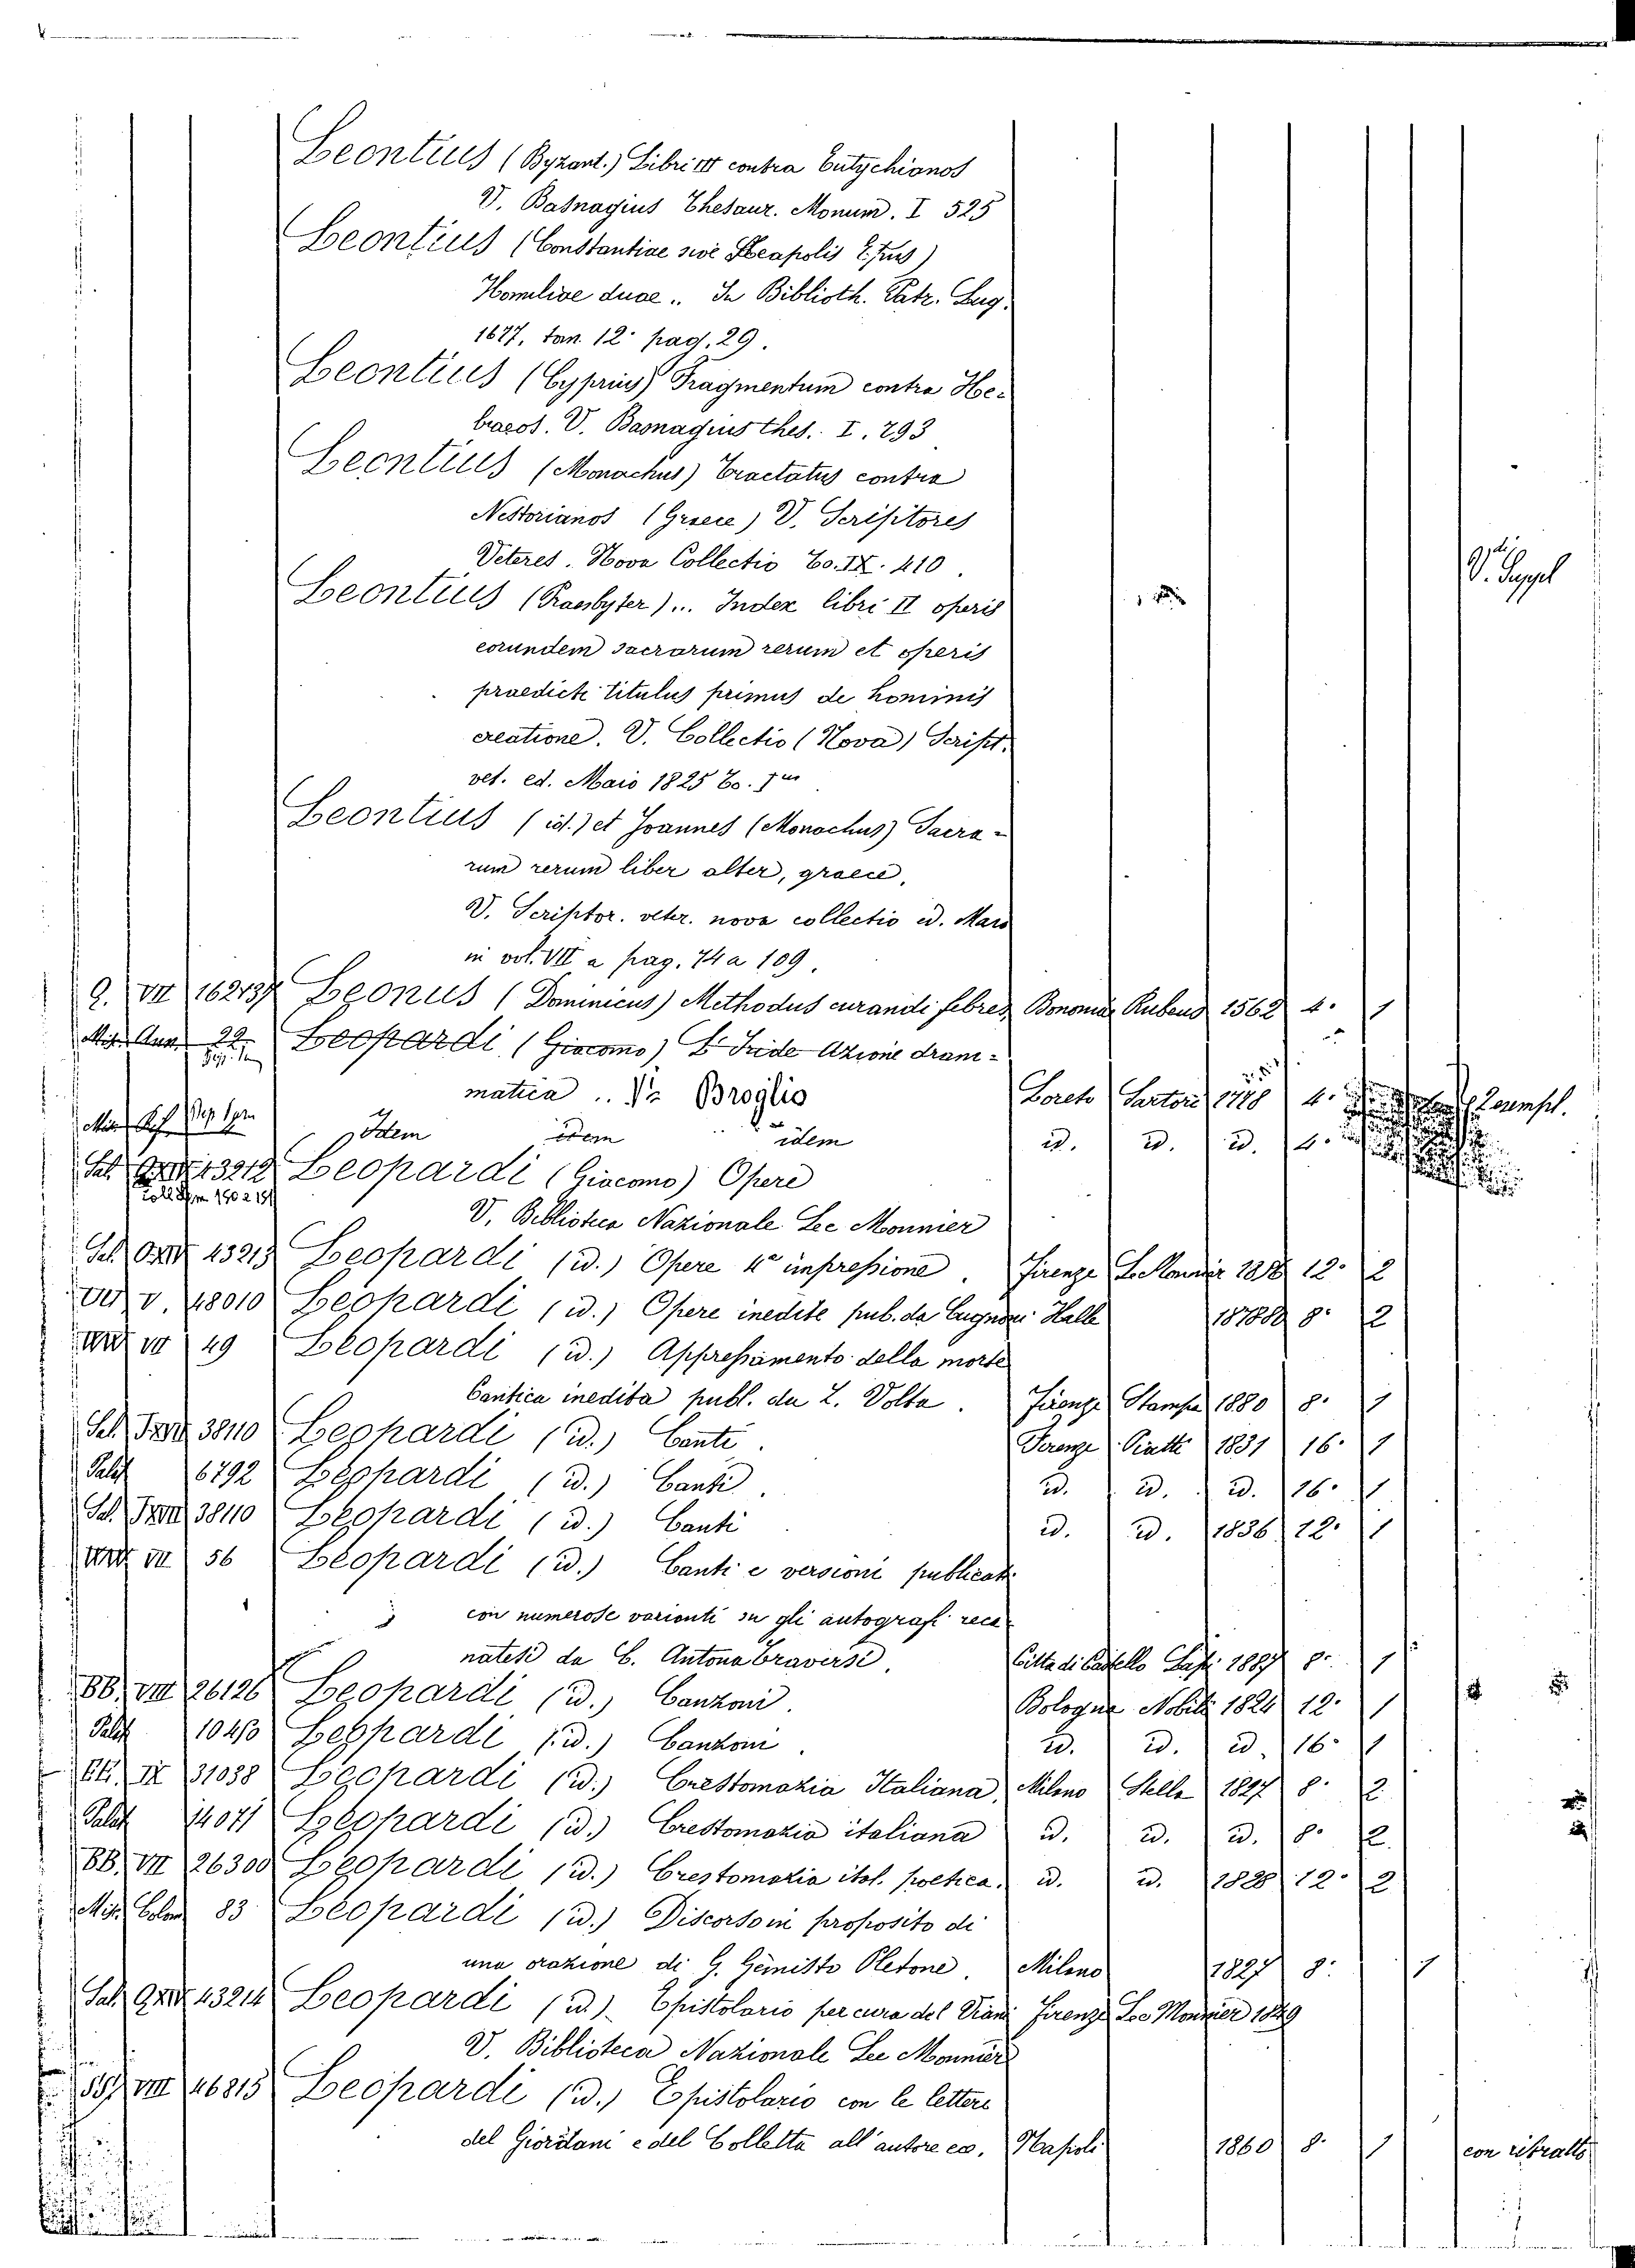 Leontius (Byzant.) Libri III contra Eutychianos
V. Basnagius Thesaur. Monum. I 525
Leontius (Constantiae sive Neapolis Epus)
Homiliae duae .. In Biblioth. Patr. Lug.
1677. tom. 12° pag. 29.
Leontius (Cyprius) Fragmentum contra He-
braeos. V. Basnagius thes. I. 793
Leontius (Monachus) Tractatus contra
Nestorianos (Graece) V. Scriptores
Veteres. Nova Collectio To. IX. 410.
V. Suppl
Leontius (Praesbyter)... Index libri II operis
eorundem sacrarum rerum et operis
praedicti titulus primus de hominis
creatione. V. Collectio (Nova) Script.
vet. ed. Maio 1825 To.
Leontius (id.) et Joannes (Monachus) Sacra-
rum rerum liber alter, graece,
V. Scriptor. veter. nova collectio ed. Maio
in vol. VII a pag. 74 a 109.
9. VII 16213 Leonus (Dominicus) Methodus curandi febres Bononiae Rubens 1562 4. 1
Misc. Ann. 22. Leopardi (Giacomo) Iride Azione dram-
matica .. Broglio Loreto Sartori 4.
Misc. Idem idem idem id. id. id. 4.
Sal. 43212 Leopardi (Giacomo) Opere
V. Biblioteca Nazionale Le Monnier
Sal. 43213 Leopardi (id.) Opere 4ª impressione. Firenze Le Monnier 12° 2
V. 48010 Leopardi (id.) Opere inedite pub. da Cugnoni Halle 8° 2
49 Leopardi (id.) Appressamento della morte
Cantica inedita publ. da Z. Volta. Firenze Stampa 1880 8° 1
Sal. 38110 Leopardi (id.) Canti. Firenze Piatti 1831 16° 1
Palat 6792 Leopardi (id.) Canti. id. id. id. 16° 1
Sal. 38110 Leopardi (id.) Canti id. id. 1836 12° 1
VII 56 Leopardi (id.) Canti e versioni publicati
con numerose varianti su gli autografi reca-
natesi da C. Antona Traversi. Città di Castello Lapi 1887 8° 1
BB. VIII 26126 Leopardi (id.) Canzoni. Bologna Nobili 1824 12° 1
Palat 10450 Leopardi (id.) Canzoni. id. id. id. 16° 1
IX 31038 Leopardi (id.) Crestomazia Italiana, Milano Stella 1827 8° 2
Palat 14071 Leopardi (id.) Crestomazia italiana id. id. id. 8° 2.
BB. VII 26300 Leopardi (id.) Crestomazia ital. poetica. id. id. 1828 12° 2
Misc. Colom 83 Leopardi (id.) Discorso in proposito di
una orazione di G. Gemisto Pletone. Milano 1827 8° 1
Sal. 43214 Leopardi (id.) Epistolario per cura del Viani Firenze Le Monnier 1849
V. Biblioteca Nazionale Le Monnier
VIII 46815 Leopardi (id.) Epistolario con le lettere
del Giordani e del Colletta all'autore ec. Napoli 1860 8° 1 con ritratto